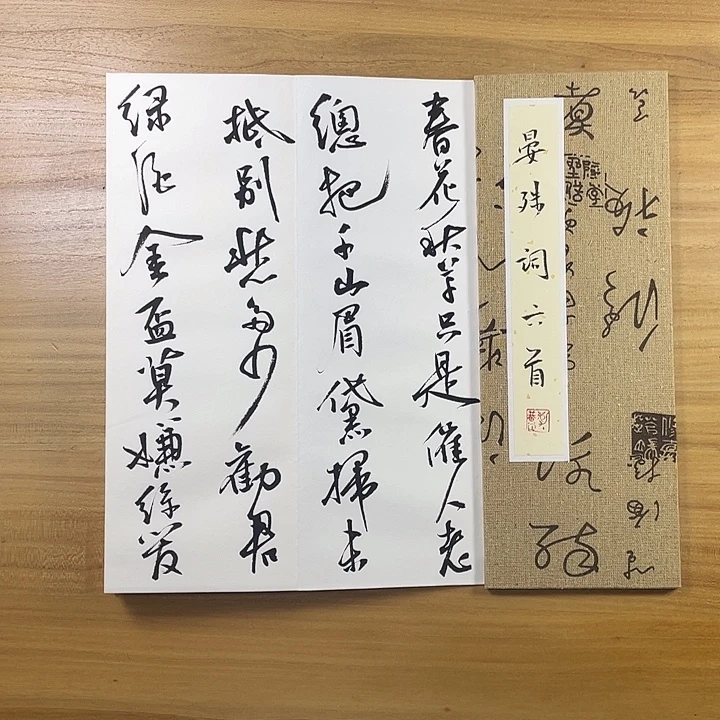 晏殊詞六首
春花秋草只是催人老
總把千山眉黛掃未
抵別愁多少勸君
緑酒金盃莫嫌絲管